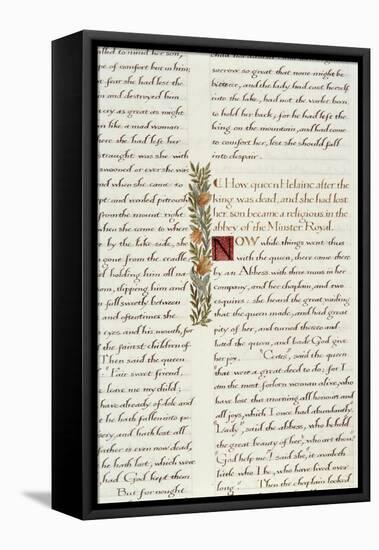 alled to mind her son,
pe of comfort but in him;
t fear she had lost the
n and destroyed him
cry as great as might
n like a mad woman
ere she had left her
traught was she with
swooned or ever she was
nd when she came to
pt and wailed piteously
from the mount right
when she came to where
by the lake-side, she
gone from the cradle
d holding him all na
slipping him and
fall sweetly between
oftentimes she
eyes and his mouth, for
the fairest children of
Then said the queen
"Fair sweet friend,
leave me my child;
have already of dole and
hath fallen into po
sery, and hath lost all
father is even now dead,
he hath lost, which were
had God kept them.
But for nought
sorrow so great that none might be
and the lady had cast herself
into the lake, had not the varlet born
to hold her back, for he had left the
king on the mountain, and had come
to comfort her, lest she should fall
into despair.
How queen Helaine after the
king was dead, and she had lost
her son became a religious in the
abbey of the Minster Royal.
NOW while things went thus
with the queen, there came there
by an Abbess with three nuns in her
company, and her chaplain, and two
esquires: she heard the great wailing
that the queen made, and had great
pity of her, and turned thereto and
hailed the queen, and bade God give
her joy. "Certes", said the queen
"that were a great deed to do; for I
am the most forlorn woman alive, who
have lost this morning all honour and
all joys, which I once had abundantly.
"Lady", said the abbess, who beheld
the great beauty of her, who art thou?"
"God help me!" said she, it availeth
little who I be, who have lived over
long." Then the chaplain looked